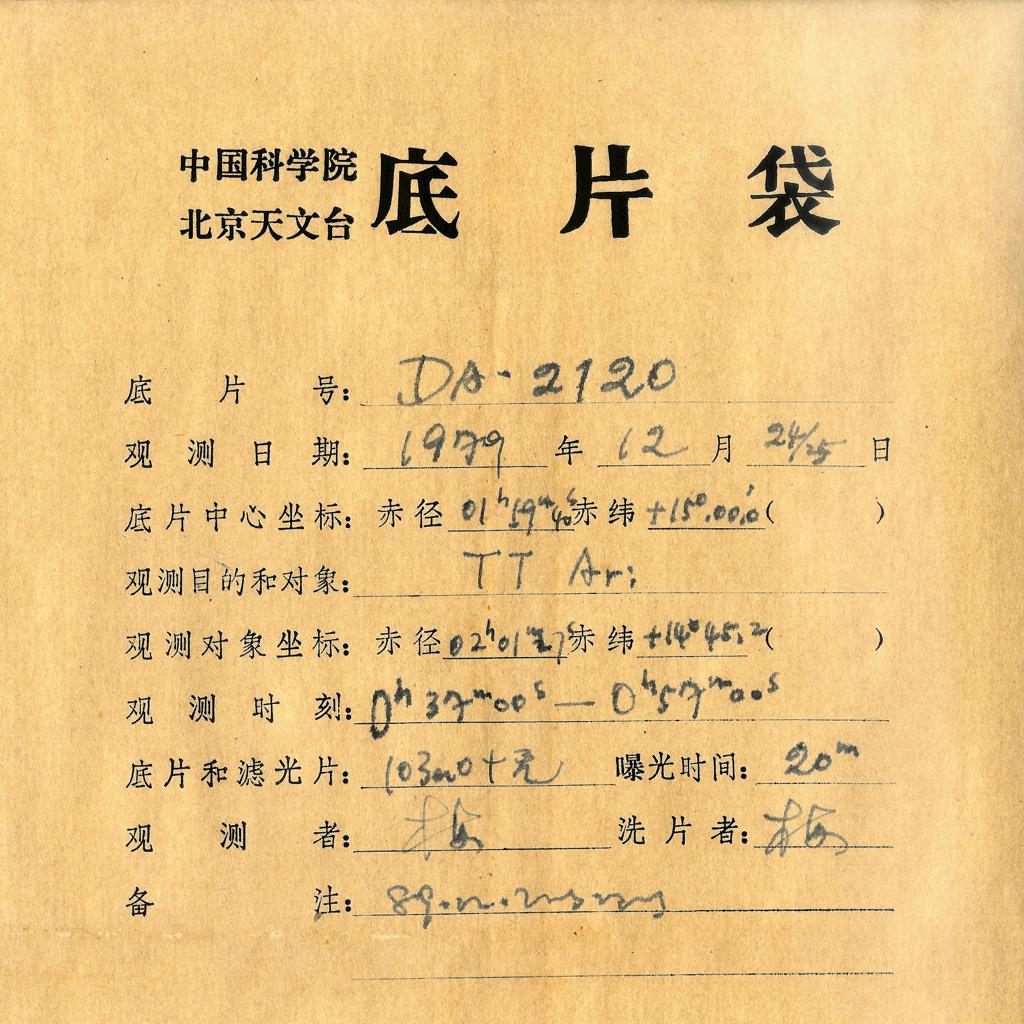 中国科学院
北京天文台
底片袋
底片号: DA-2120
观测日期: 1979年12月24/25日
底片中心坐标: 赤径 01h59m40s 赤纬 +15°.00'.0 ( )
观测目的和对象: TT Ari
观测对象坐标: 赤径 02h01m27s 赤纬 +14°45.2 ( )
观测时刻: 0h37m00s — 0h57m00s
底片和滤光片: 103a0+无 曝光时间: 20m
观测者: 梅 洗片者: 梅
备注: